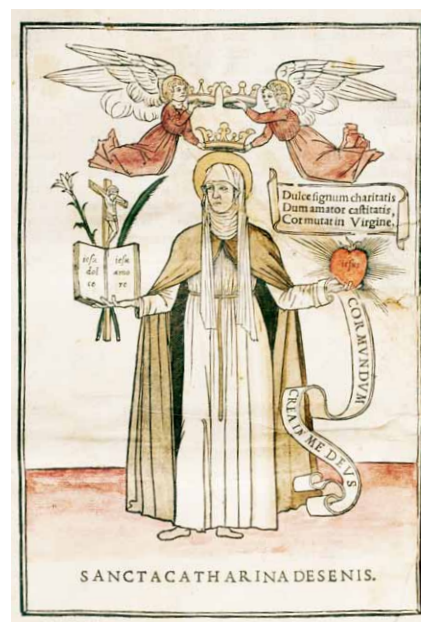 Dulce signum charitatis
Dum amator castitatis,
Cor mutat in Virgine,
iesu
dol
ce
iesu
amo
re
iesus
COR MVNDVM
CREA IN ME DEVS
SANCTA CATHARINA DE SENIS.